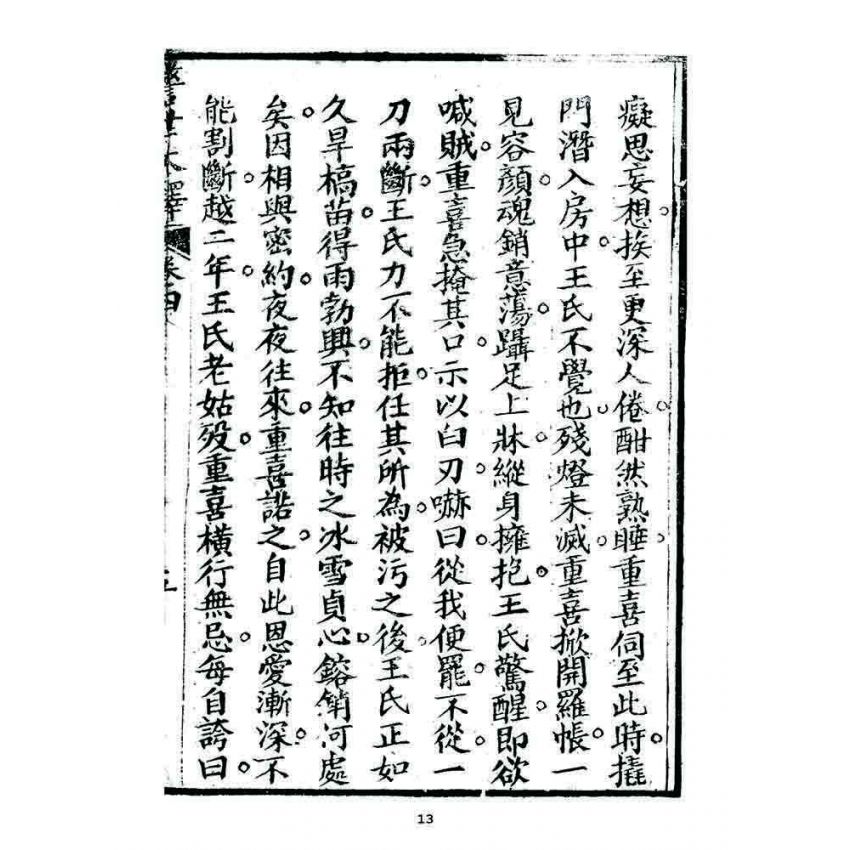 癡思妄想挨至更深人倦酣然熟睡重喜伺至此時撬
門潛入房中王氏不覺也殘燈未滅重喜掀開羅帳一
見容顏魂銷意蕩躡足上牀縱身擁抱王氏驚醒即欲
喊賊重喜急掩其口示以白刃嚇曰從我便罷不從一
刀兩斷王氏力不能拒任其所為被污之後王氏正如
久旱槁苗得雨勃興不知往時之冰雪貞心鎔銷何處
矣因相與密約夜夜往來重喜諾之自此恩愛漸深不
能割斷越二年王氏老姑歿重喜橫行無忌每自誇曰
卷四
13